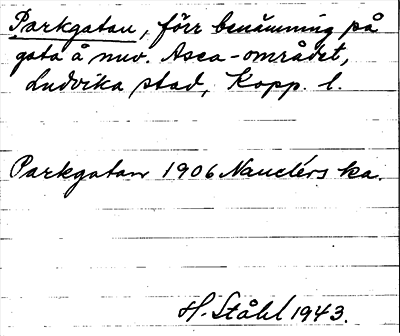 Parkgatan, förr benämning på
gata å nuv. Asea-området,
Ludvika stad, Kopp. l.
Parkgatan 1906 Nauclérs ka.
H. Ståhl 1943.